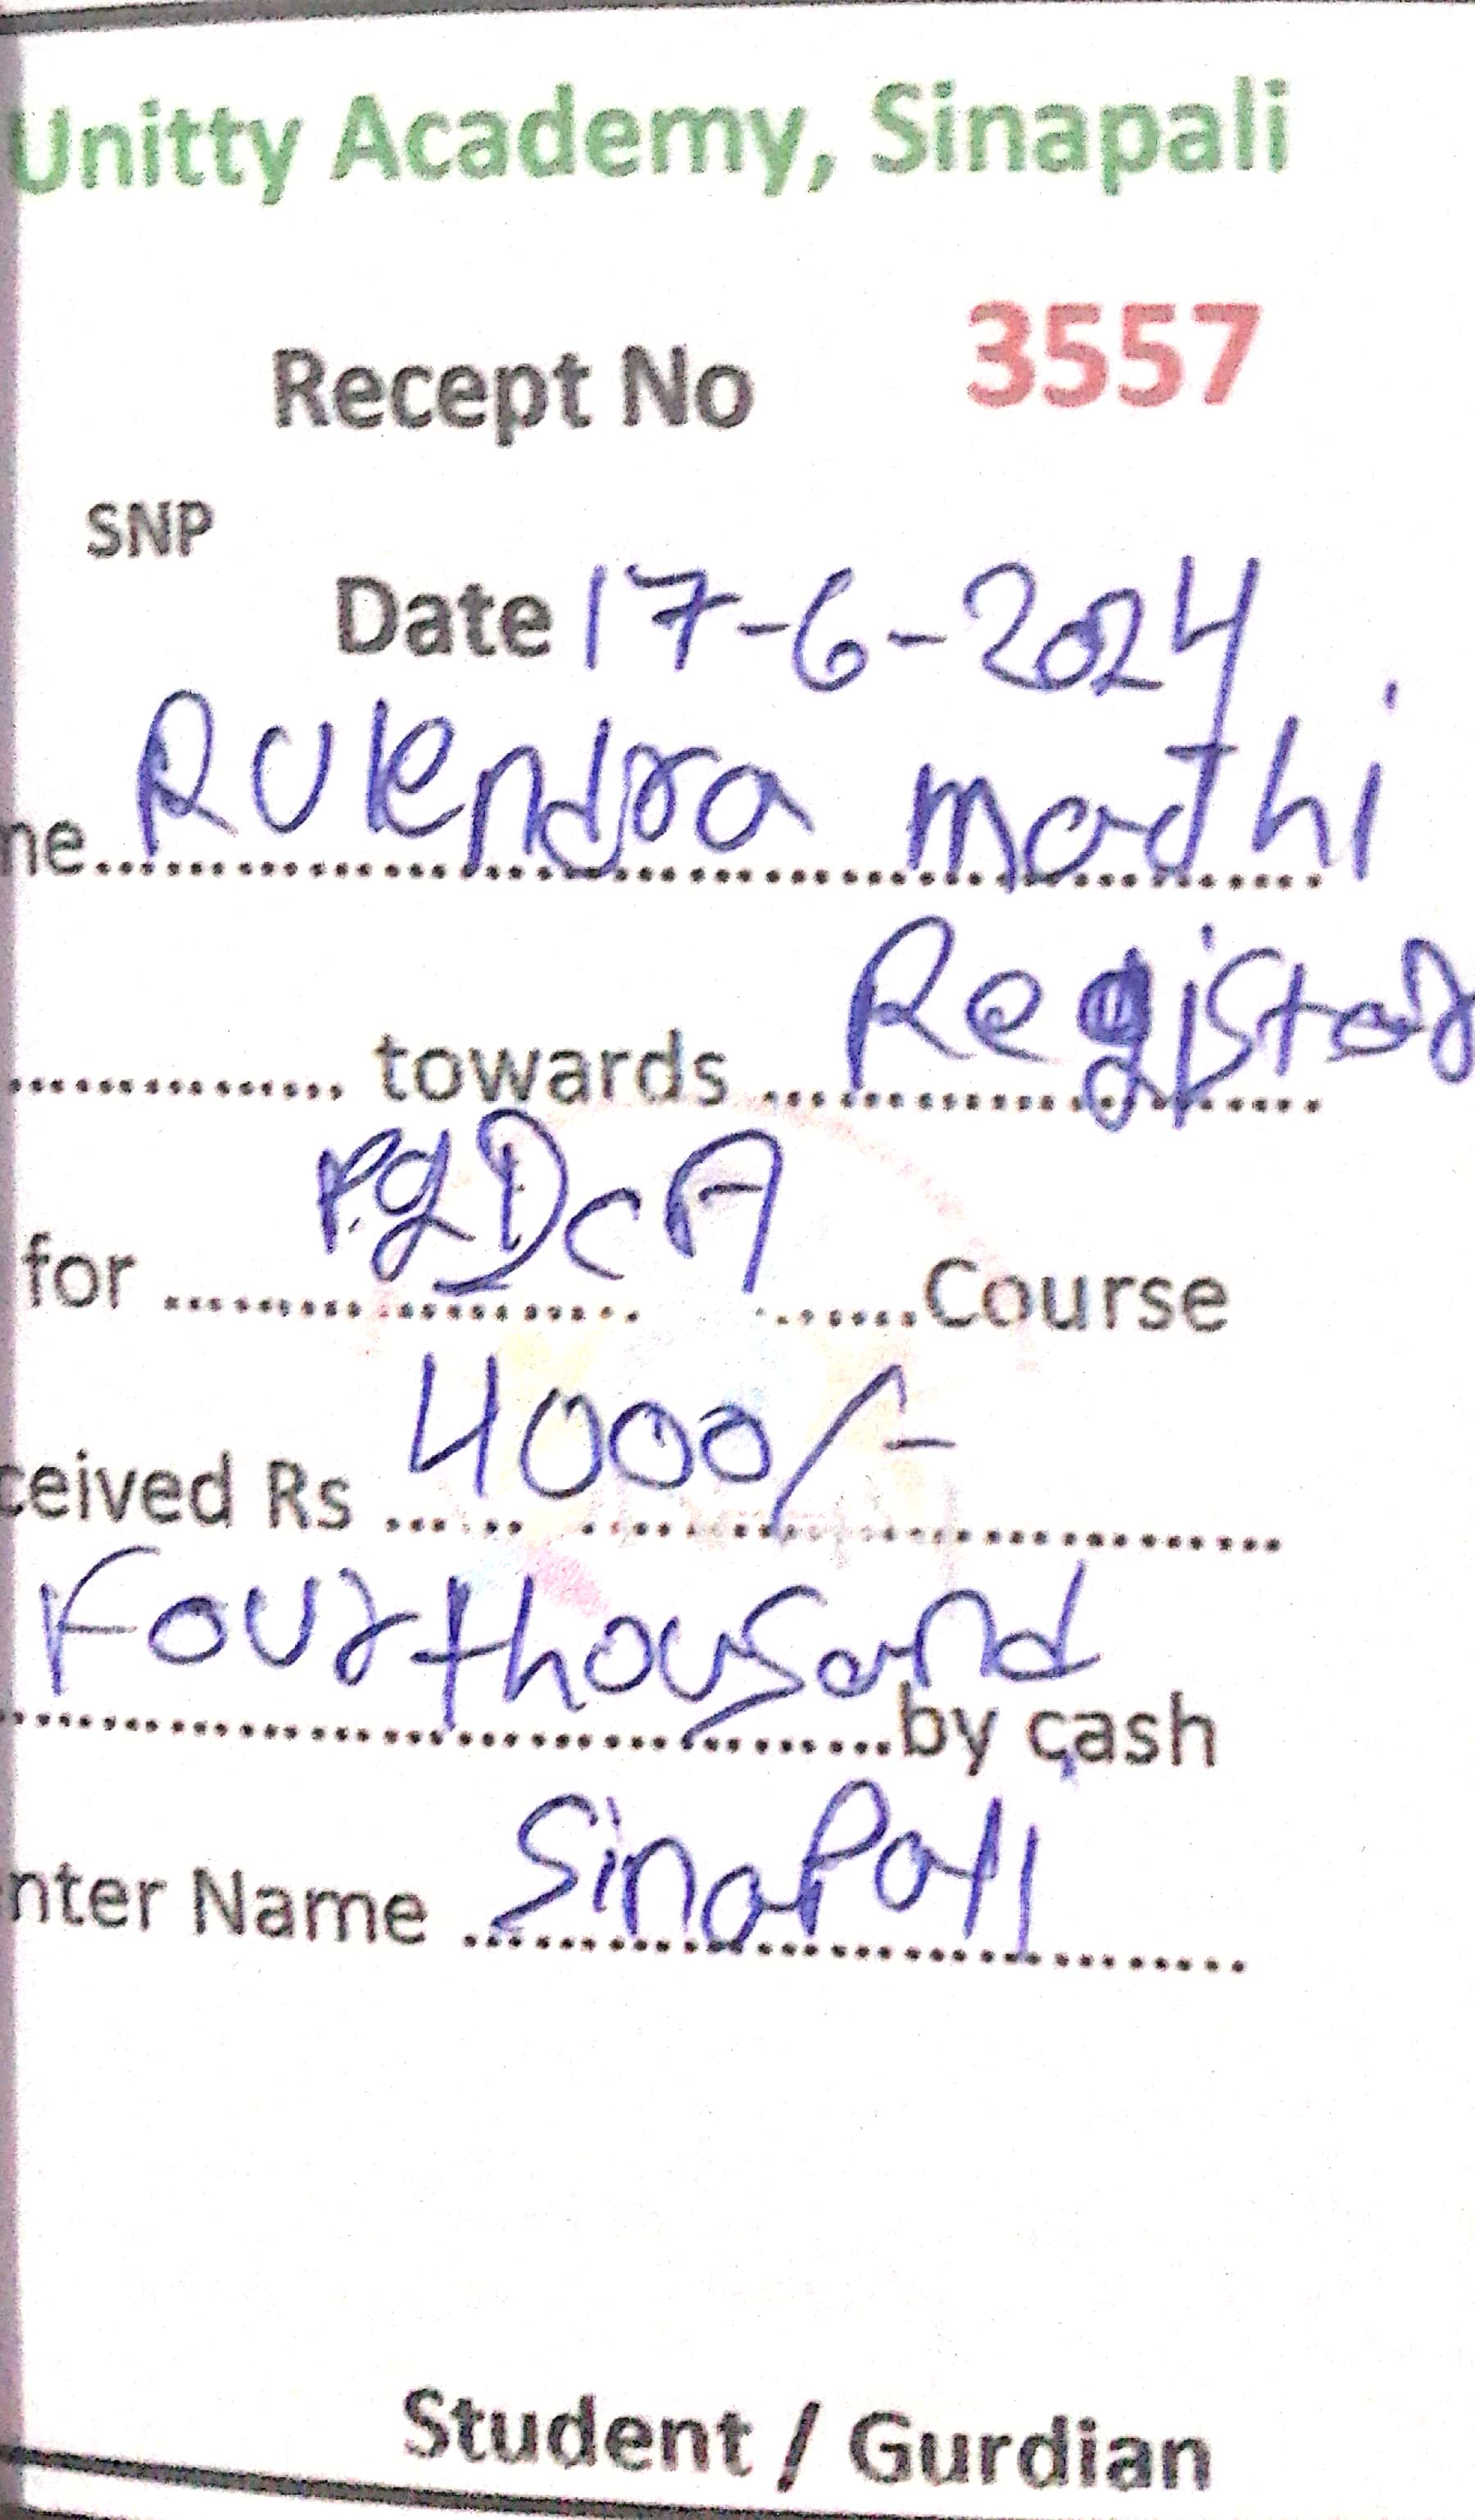 Unitty Academy, Sinapali
Recept No 3557
SNP
Date 17-6-2024
me Rulendra madhi
towards Registar
for PgDCA Course
ceived Rs 4000/-
Four thousand by cash
nter Name Sinapali
Student / Gurdian